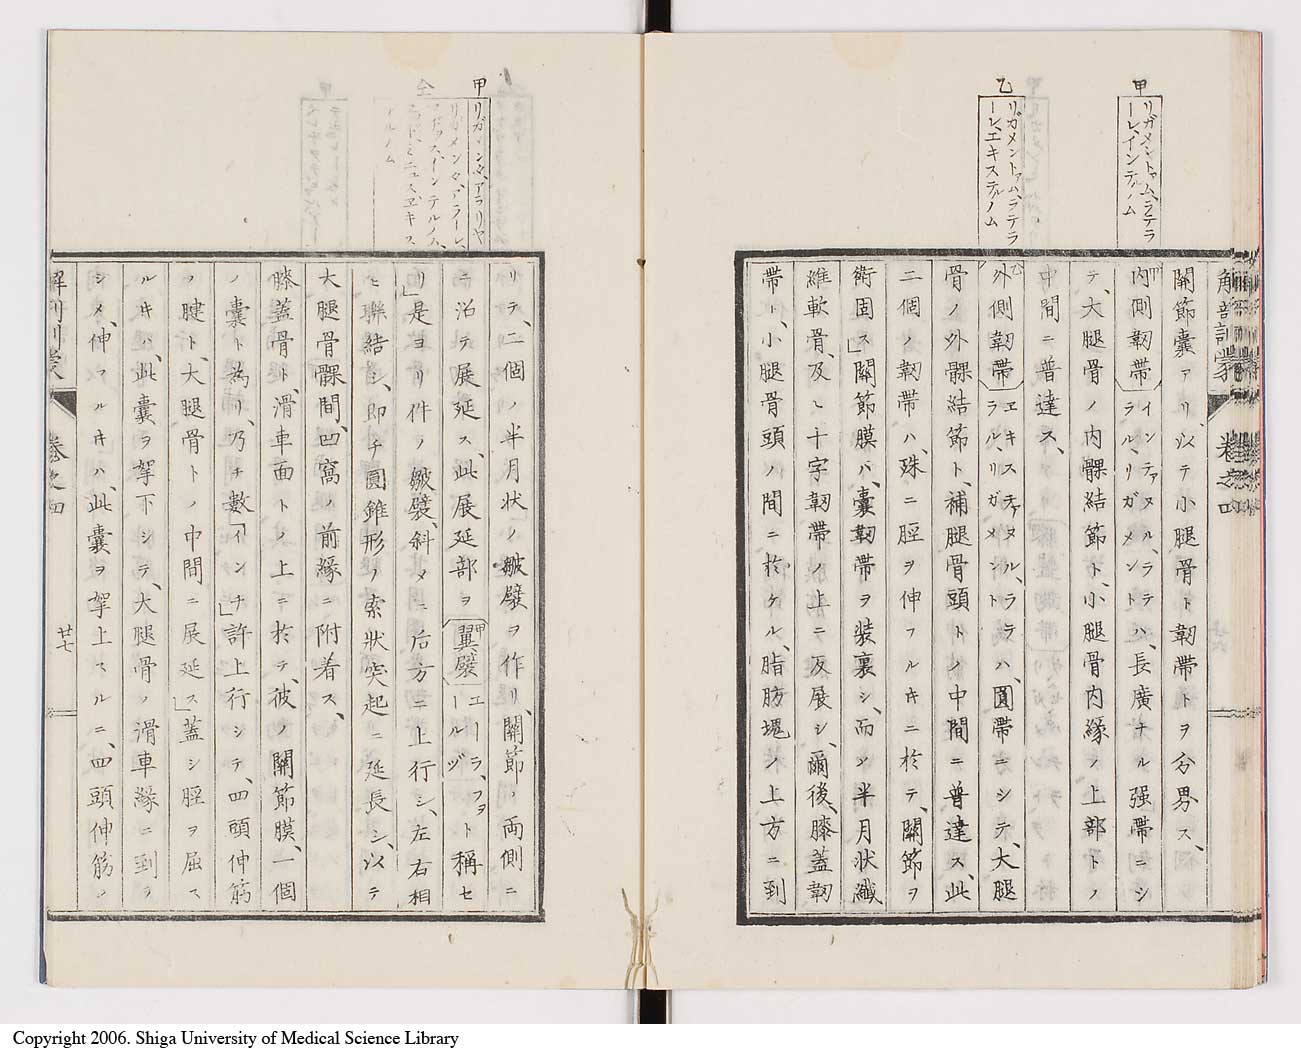 甲
リガメントァム、ラテラ
ーレ、インテルノム
乙
リガメントァム、ラテラ
ーレ、エキステルノム
解剖訓蒙 卷之四
關節囊アリ、以テ小腿骨ト韌帶トヲ分界ス、
甲內側韌帶インテァヌル、ラテラル、リガメントハ、長廣ナル强帶ニシ
テ、大腿骨ノ內髁結節ト、小腿骨內緣ノ上部トノ
中間ニ普達ス、
乙外側韌帶ヱキステァヌル、ラテラル、リガメントハ、圓帶ニシテ、大腿
骨ノ外髁結節ト、補腿骨頭トノ中間ニ普達ス、此
二個ノ韌帶ハ、殊ニ脛ヲ伸フルキニ於テ、關節ヲ
衛固ス」關節膜ハ、囊韌帶ヲ裝裏シ、而ン半月狀纎
維軟骨、及ヒ十字韌帶ノ上ニ反展シ、爾後、膝蓋韌
帶ト、小腿骨頭ノ間ニ於ケル、脂肪塊ノ上方ニ到
甲
リガメンタ、アラリヤ
仝
リガメンタ、アラーレ、
マドァス、インテルノム、
ミニュス、エキス
テルノム
リテ、二個ノ半月狀ノ皺襞ヲ作リ、關節ノ両側ニ
沿テ展延ス、此展延部ヲ甲翼襞エーラ、フヲールヅト稱セ
リ」是ヨリ件ノ皺襞、斜メニ后方ニ上行シ、左右相
ヒ聯結シ、即チ圓錐形ノ索狀突起ニ延長シ、以テ
大腿骨髁間、凹窩ノ前緣ニ附着ス、
膝蓋骨ト、滑車面トノ上ニ於テ、彼ノ關節膜、一個
ノ囊ト為リ、乃チ數「インチ」許上行シテ、四頭伸筋
ノ腱ト、大腿骨トノ中間ニ展延ス」蓋シ脛ヲ屈ス
ルキハ、此囊ヲ牽下シテ、大腿骨ノ滑車緣ニ到ラ
シメ、伸フルキハ、此囊ヲ牽上スルニ、四頭伸筋ノ
解剖訓蒙 卷之四 廿七